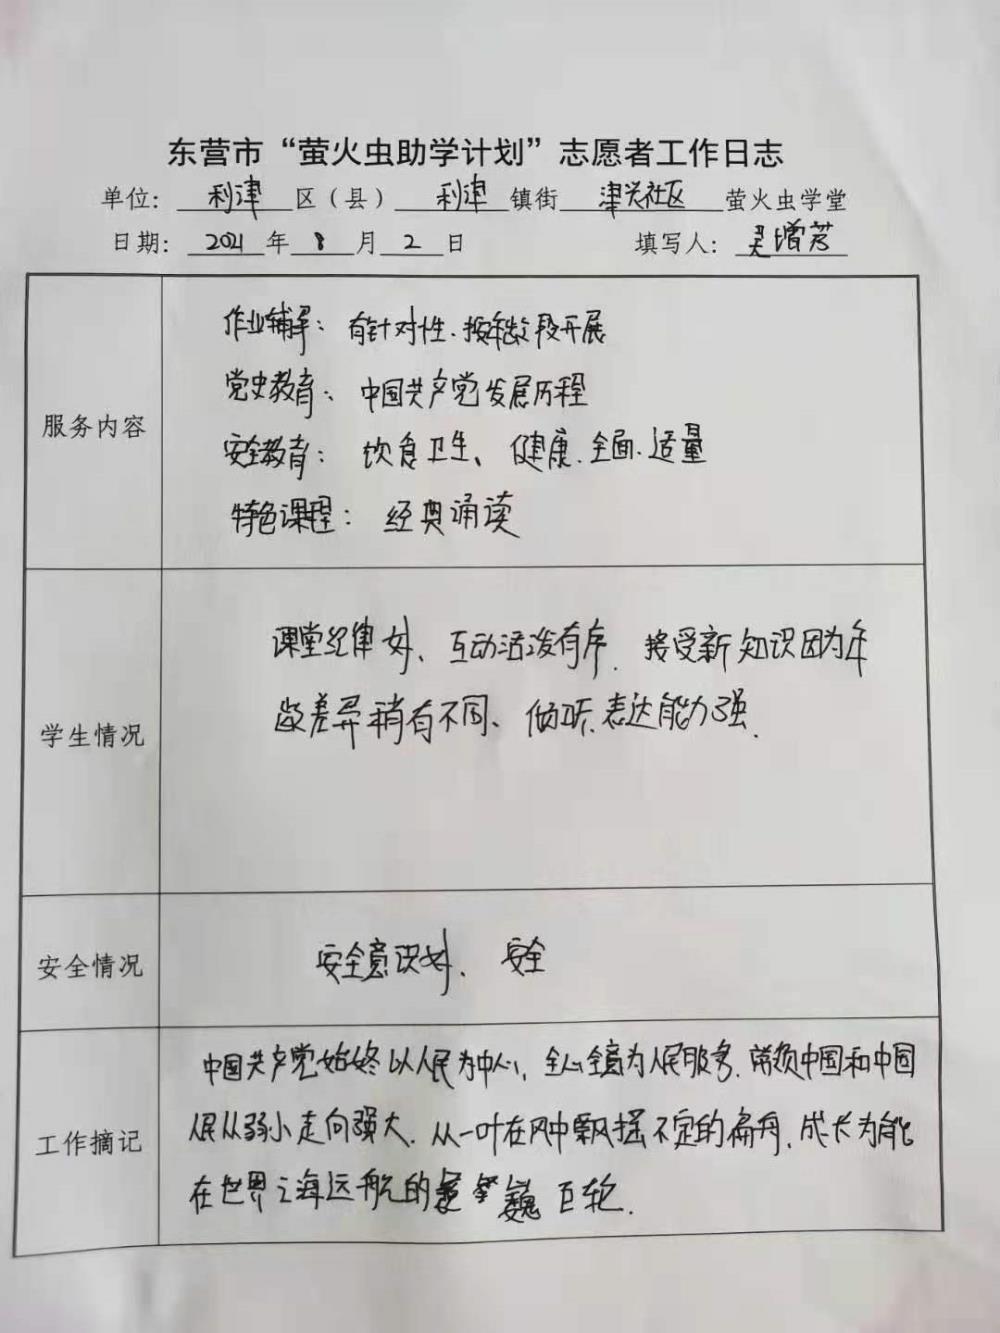 东营市“萤火虫助学计划”志愿者工作日志
单位：利津区（县）利津镇街津兴社区萤火虫学堂
日期：2021年8月2日 填写人：吴增芳
服务内容
作业辅导：有针对性、按年龄段开展
党史教育：中国共产党发展历程
安全教育：饮食卫生、健康、全面、适量
特色课程：经典诵读
学生情况
课堂纪律好、互动活泼有序、接受新知识因为年
龄差异稍有不同、倾听、表达能力强.
安全情况
安全意识好、安全
工作摘记
中国共产党始终以人民为中心，全心全意为人民服务，带领中国和中国
人民从弱小走向强大，从一叶在风中飘摇不定的扁舟，成长为能
在世界之海远航的巍巨轮.